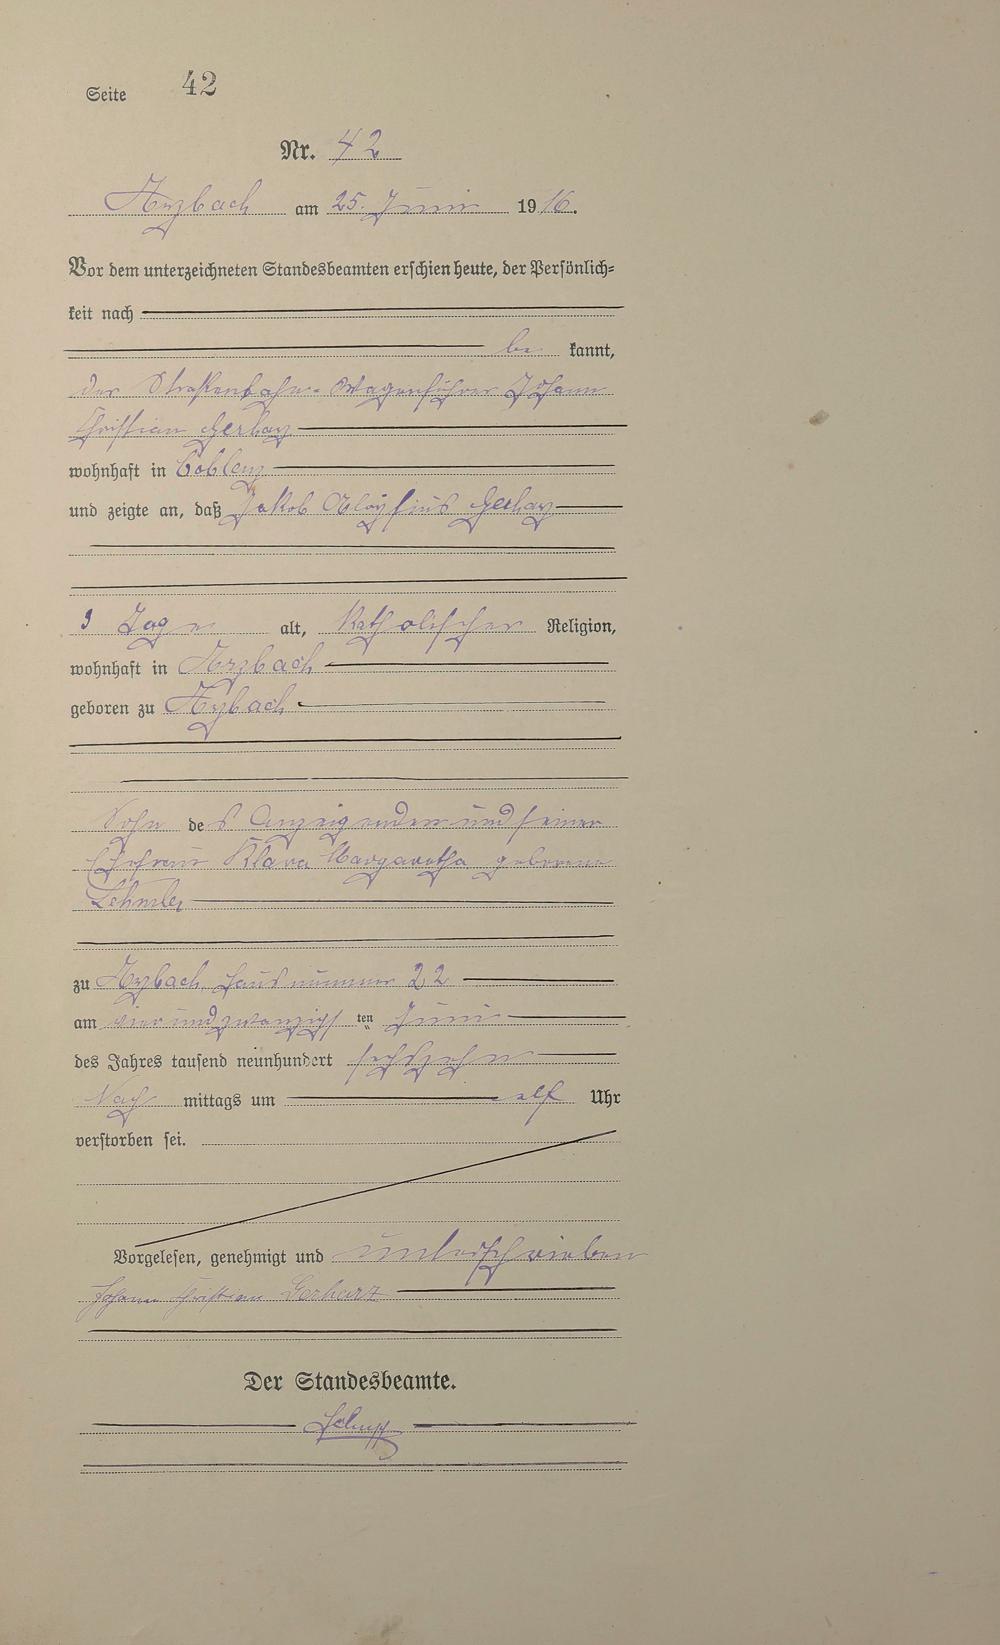 Seite 42
Nr. 42
Arzbach am 25. Juni 1916.
Vor dem unterzeichneten Standesbeamten erschien heute, der Persönlich=
keit nach
be kannt,
der Straßenbahn-Wagenführer Johann
Christian Gerharz
wohnhaft in Coblenz
und zeigte an, daß Jakob Aloysius Gerharz
Tage alt, katholischer Religion,
wohnhaft in Arzbach
geboren zu Arzbach
Sohn des Anzeigenden und seiner
Ehefrau Klara Margaretha geborene
zu Arzbach, Hausnummer 22
am vier und zwanzigsten Juni
des Jahres tausend neunhundert sechszehn
Nach mittags um elf Uhr
verstorben sei.
Vorgelesen, genehmigt und unterschrieben
Johann Christian Gerharz
Der Standesbeamte.